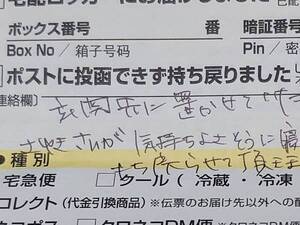 宅配ロッカーにお届けしました
ボックス番号 番 暗証番号
Box No / 箱子号码 Pin / 密
□ポストに投函できず持ち戻りました
連絡欄】玄関先に置かせて
気持ちよさそうに寝
● 種別 もち戻らせて頂き
宅急便 □クール ( 冷蔵 ・ 冷凍
コレクト (代金引換商品) ※伝票のお届け先以外への配
ネコポス □クロネコDM便